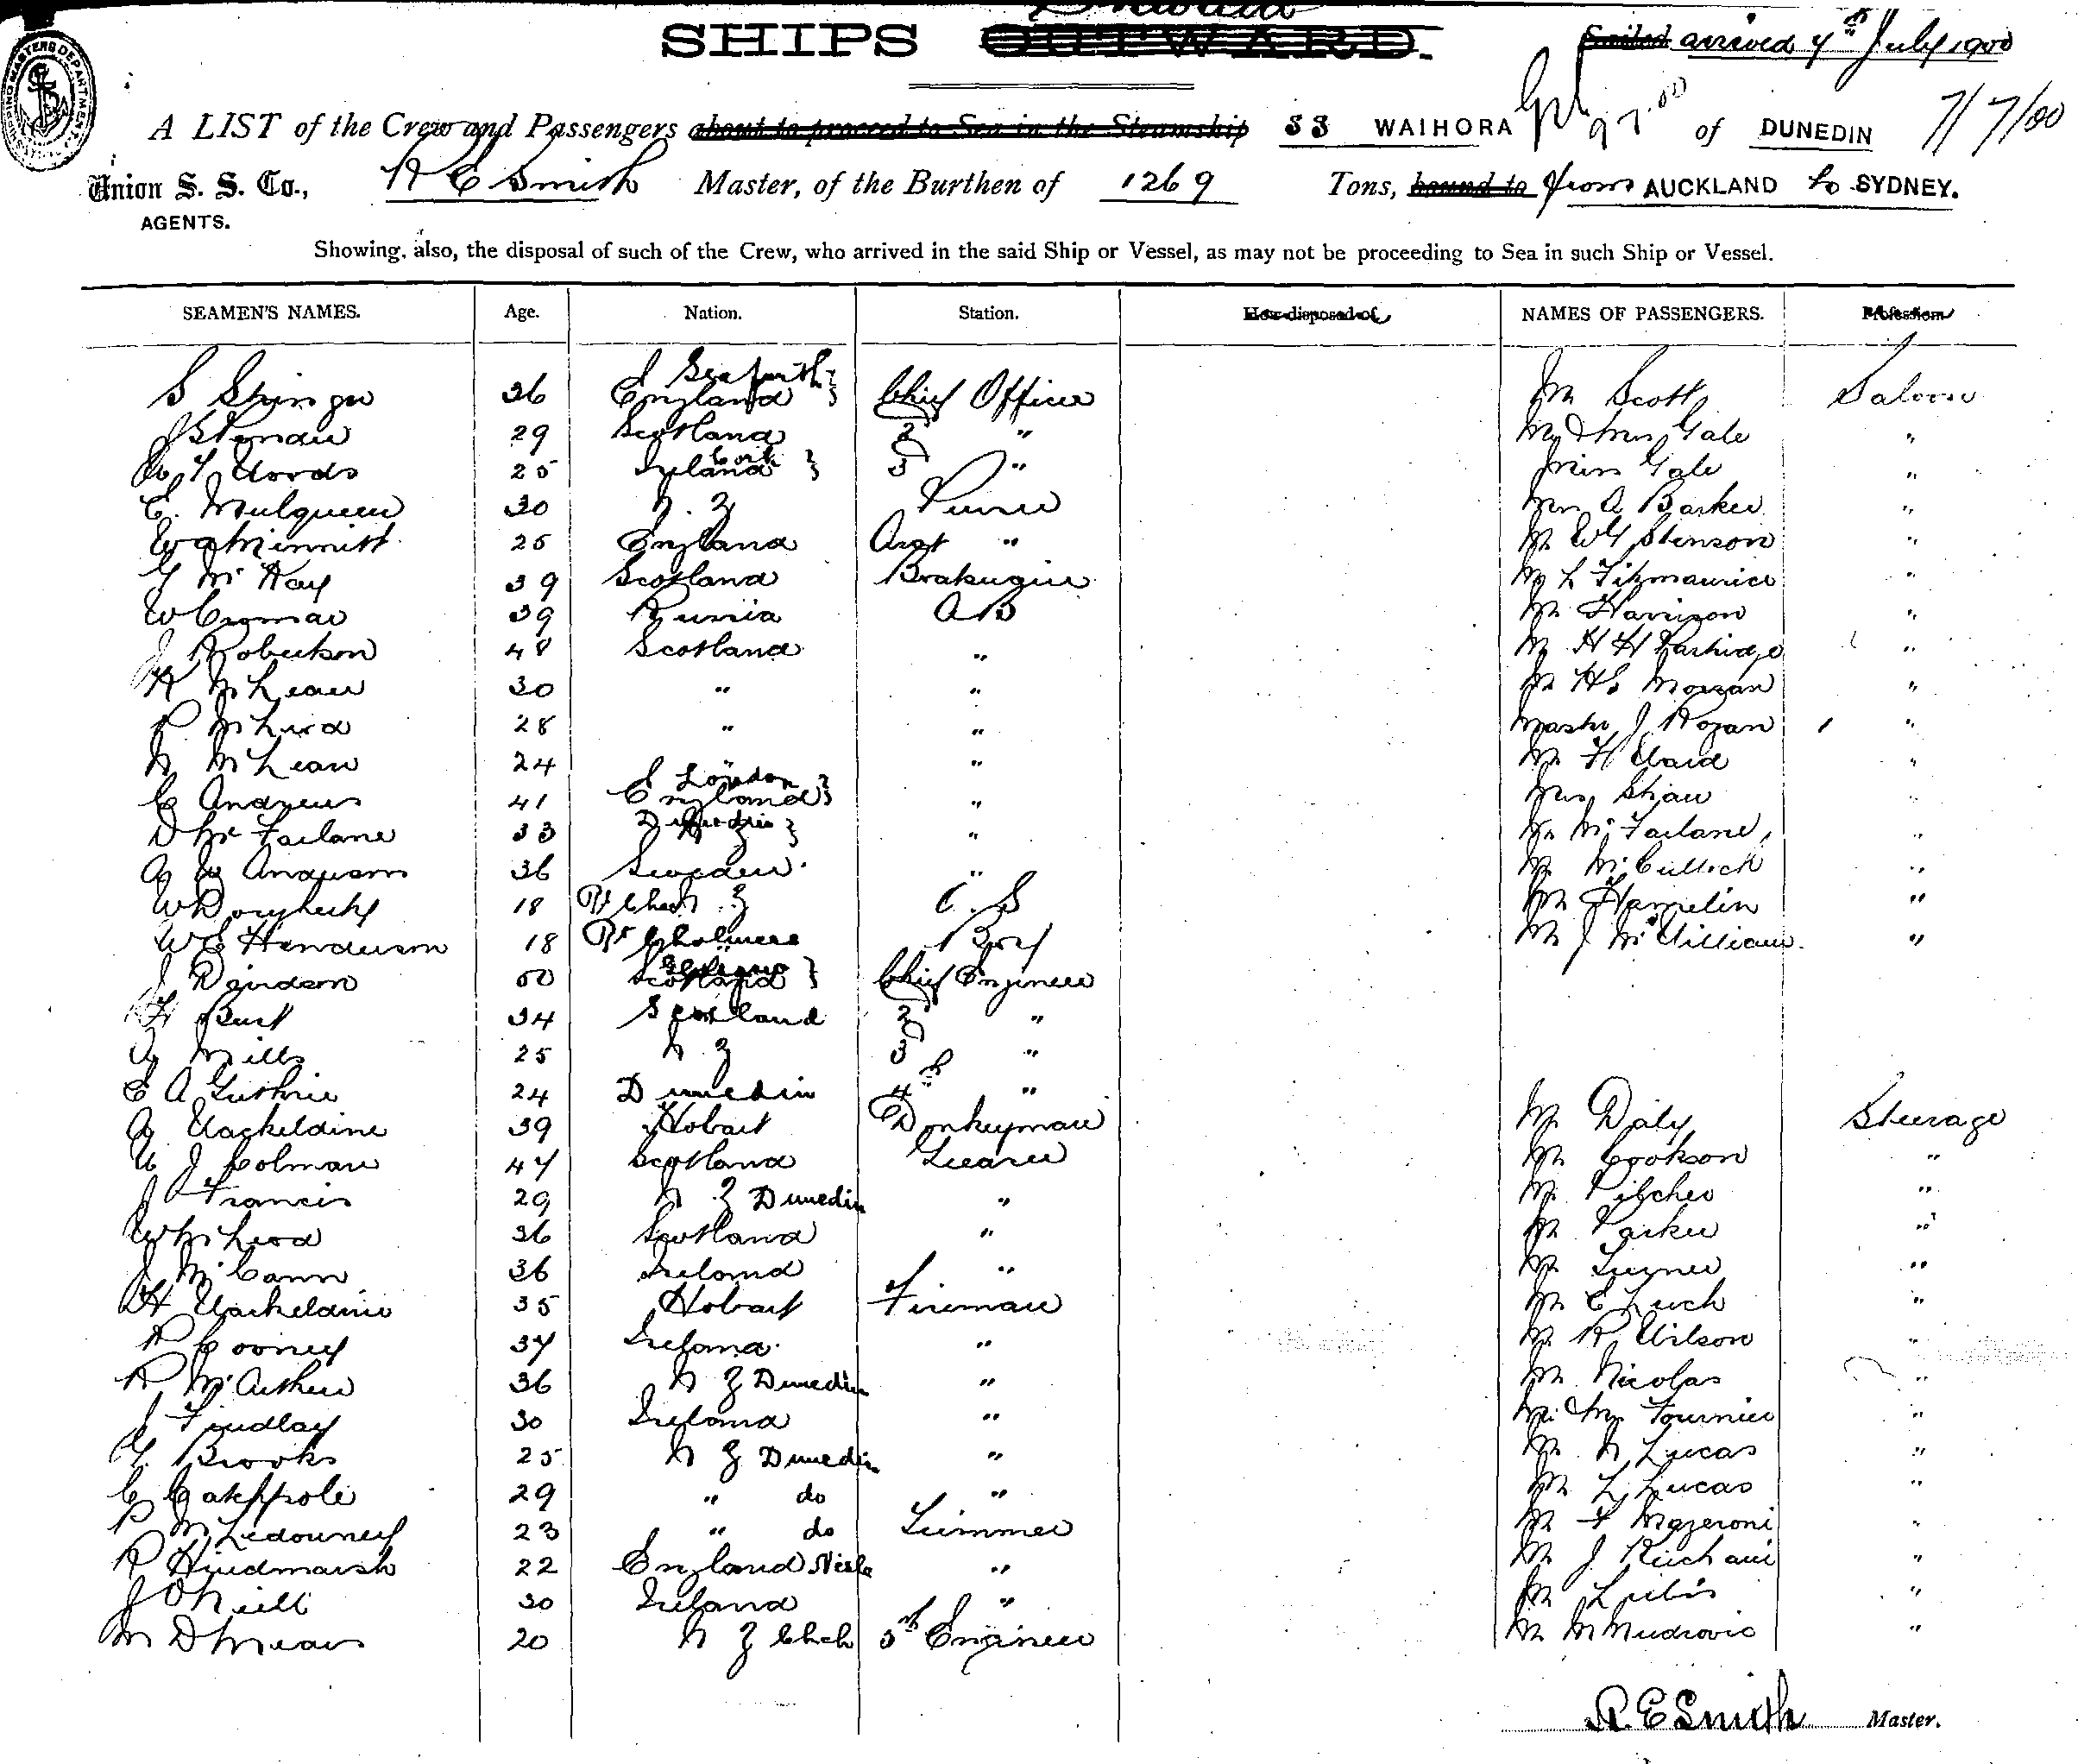 Inward
SHIPS OUTWARD.
Sailed arrived 7th July 1900
SHIPPING MASTERS DEPARTMENT
A LIST of the Crew and Passengers about to proceed to Sea in the Steamship SS WAIHORA of DUNEDIN 7/7/00
Union S. S. Co., R E Smith Master, of the Burthen of 1269 Tons, bound to from AUCKLAND to SYDNEY.
AGENTS.
Showing, also, the disposal of such of the Crew, who arrived in the said Ship or Vessel, as may not be proceeding to Sea in such Ship or Vessel.
SEAMEN'S NAMES. Age. Nation. Station. How disposed of NAMES OF PASSENGERS. Profession
Seaforth
S 36 England Chief Officer Mr Scott Saloon
29 Scotland 2 " Mr & Mrs Gale "
Cork
Woods 25 Ireland 3 " Miss Gale "
E. Mulqueen 30 N. Z Purser Mrs A Barker "
Minnitt 25 England Asst " Mr W G Stenson "
G McKay 39 Scotland Mr L Fitzmaurice "
W 39 Russia A B Mr Harrison "
J Robertson 48 Scotland " Mr H H Partridge "
R McLean 30 " " Mr H S Morgan "
P McLeod 28 " " Master J Hogan "
N McLean 24 " " Mr F Ward "
London
C Andrews 41 England " Mrs Shaw "
Dunedin
D McFarlane 33 N Z " Mr McFarlane "
A W Anderson 36 Sweden " Mr McCulloch "
W 18 Pt Chas N. Z O. S Mr Hamelin "
W E Henderson 18 Pt Chalmers Boy Mr J McWilliams "
Glasgow
J Davidson 50 Scotland Chief Engineer
Burt 34 Scotland 2 "
A Mills 25 N Z 3 "
E A Guthrie 24 Dunedin 4th "
A Wackeldine 39 Hobart Donkeyman Mr Daly Steerage
W J Colman 47 Scotland Greaser Mr Cookson "
J Francis 29 N Z Dunedin " Mr Pilcher "
W McLeod 36 Scotland " Mr Parker "
J McCann 36 Ireland " Mr Turner "
H Wackeldine 35 Hobart Fireman Mr E Luch "
R Cooney 37 Ireland " Mr R Wilson "
R McArthur 36 N Z Dunedin " Mr Nicolas "
J Findlay 30 Ireland " Mr & Mrs Fournier "
G. Brooks 25 N Z Dunedin " Mr N Lucas "
C Catchpole 29 " do " Mr L Lucas "
P McLedowney 23 " do Trimmer Mr F Mazeroni "
R Hindmarsh 22 England " Mr J "
J O'Neill 30 Ireland " Mr "
M D Mears 20 N Z Chch 5th Engineer Mr M Mudrovic "
R. E Smith Master.